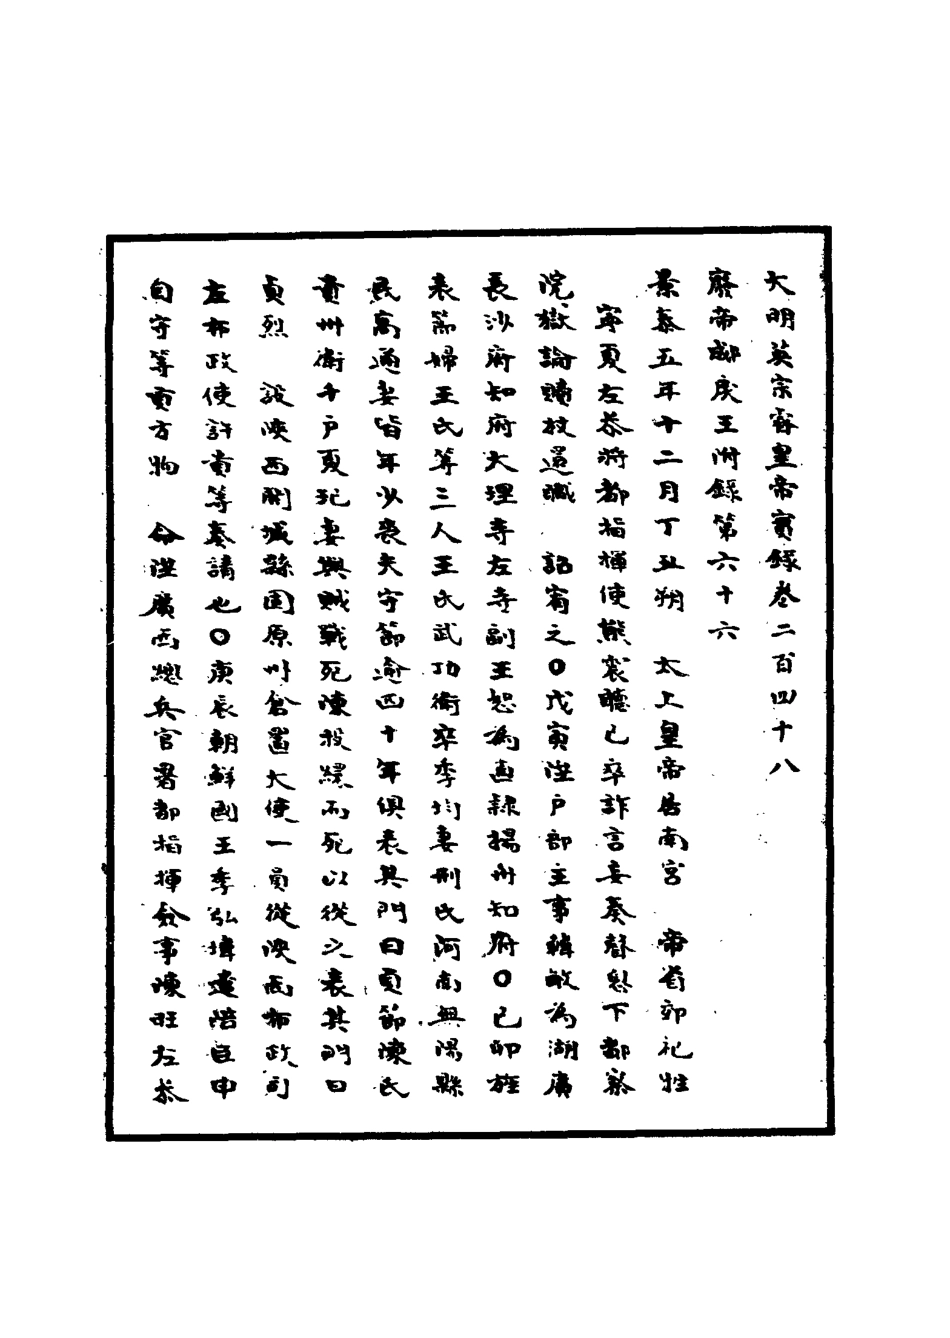 大明英宗睿皇帝實錄卷二百四十八
廢帝郕戾王附錄第六十六
景泰五年十二月丁丑朔　太上皇帝居南宮　帝省郊祀牲
寧夏左叅將都指揮使熊衮聽已卒詐言妄奏督懇下都察
院獄論贖杖還職　詔宥之○戊寅陞戶部主事韓敏為湖廣
長沙府知府大理寺左寺副王恕為直隸揚州知府○己卯旌
表節婦王氏等三人王氏武功衛卒季均妻刑氏河南無陽縣
民高通妻皆年少喪夫守節逾四十年俱表其門曰貞節陳氏
貴州衛千戶夏玘妻與賊戰死陳投繯而死以從之表其門曰
貞烈　設陝西開城縣固原州倉置大使一員從陝西布政司
左布政使許貴等奏請也○庚辰朝鮮國王李弘暐遣陪臣申
自守等貢方物　命陞廣西總兵官署都指揮僉事陳旺左叅